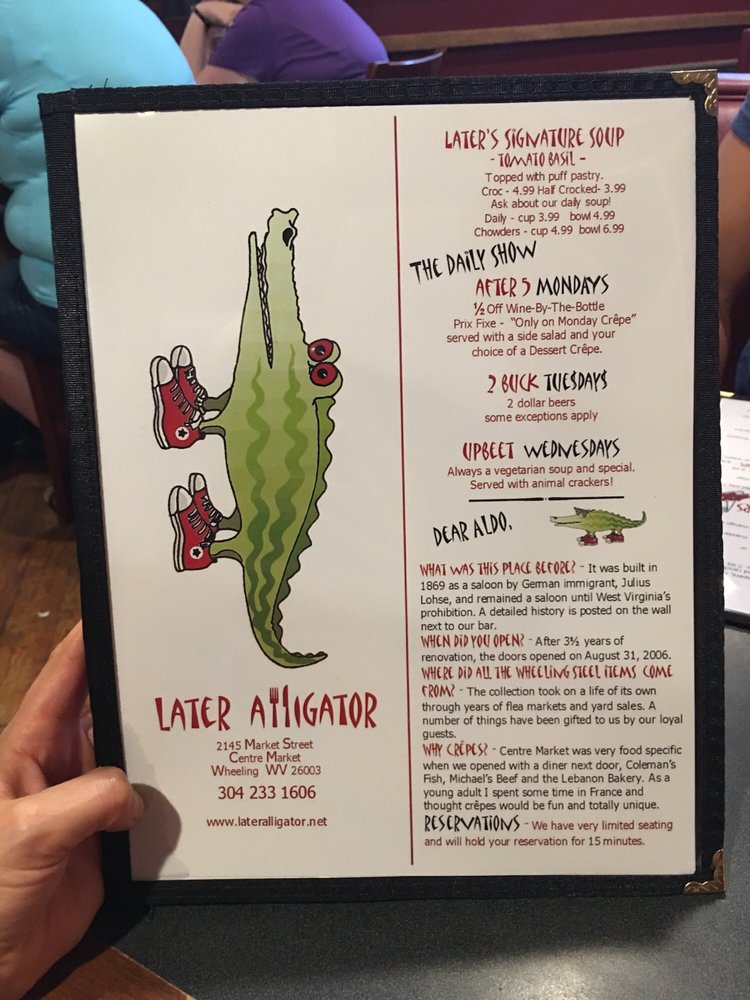 LATER ALLIGATOR
2145 Market Street
Centre Market
Wheeling WV 26003
304 233 1606
www.lateralligator.net
LATER'S SIGNATURE SOUP
- TOMATO BASIL -
Topped with puff pastry.
Croc - 4.99 Half Crocked- 3.99
Ask about our daily soup!
Daily - cup 3.99 bowl 4.99
Chowders - cup 4.99 bowl 6.99
THE DAILY SHOW
AFTER 5 MONDAYS
½ Off Wine-By-The-Bottle
Prix Fixe - "Only on Monday Crêpe"
served with a side salad and your
choice of a Dessert Crêpe.
2 BUCK TUESDAYS
2 dollar beers
some exceptions apply
UPBEET WEDNESDAYS
Always a vegetarian soup and special.
Served with animal crackers!
DEAR ALDO,
WHAT WAS THIS PLACE BEFORE? - It was built in
1869 as a saloon by German immigrant, Julius
Lohse, and remained a saloon until West Virginia's
prohibition. A detailed history is posted on the wall
next to our bar.
WHEN DID YOU OPEN? - After 3½ years of
renovation, the doors opened on August 31, 2006.
WHERE DID ALL THE WHEELING STEEL ITEMS COME
FROM? - The collection took on a life of its own
through years of flea markets and yard sales. A
number of things have been gifted to us by our loyal
guests.
WHY CRÊPES? - Centre Market was very food specific
when we opened with a diner next door, Coleman's
Fish, Michael's Beef and the Lebanon Bakery. As a
young adult I spent some time in France and
thought crêpes would be fun and totally unique.
RESERVATIONS - We have very limited seating
and will hold your reservation for 15 minutes.